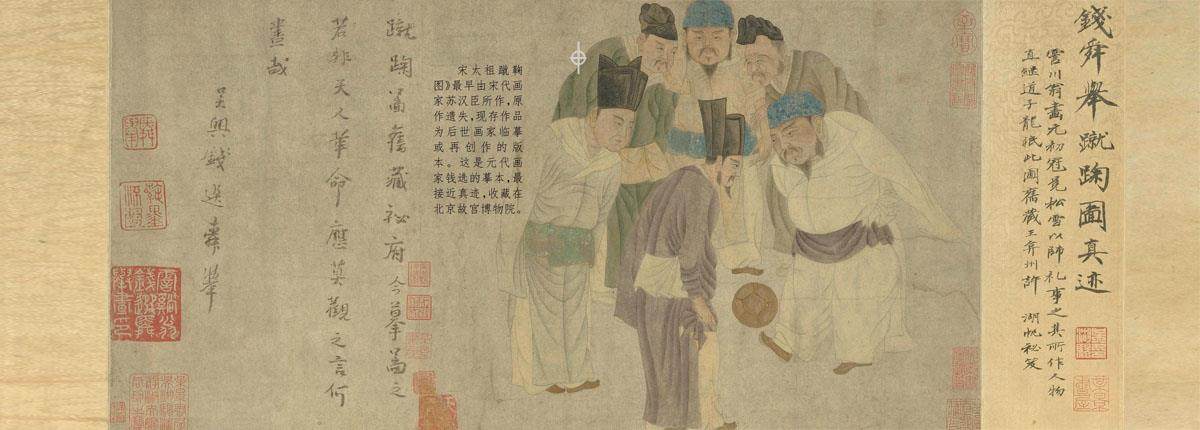 錢舜舉蹴踘圖真迹
霅川翁畫元初冠冕松雪以師礼事之其所作人物
直繼道子龍眠此圖舊藏王弇州許 湖帆秘笈
宋太祖蹴鞠
图》最早由宋代画
家苏汉臣所作，原
作遗失，现存作品
为后世画家临摹
或再创作的版
本。这是元代画
家钱选的摹本，最
接近真迹，收藏在
北京故宫博物院。
蹴踘啚舊藏祕府今摹啚之
若非天人革命應莫觀之言何
畫哉
吳興錢選舜舉